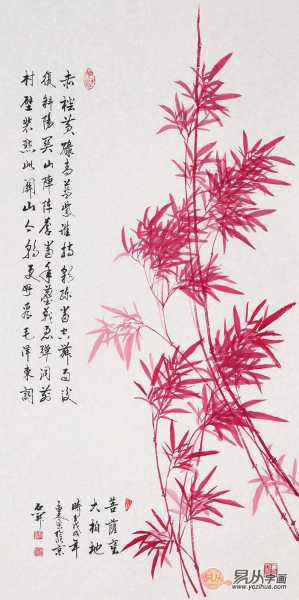 赤橙黃綠青藍紫誰持彩練當空舞雨後
復斜陽關山陣陣蒼當年鏖戰急彈洞前
村壁裝點此關山今朝更好看毛澤東詞
菩薩蠻
大柏地
時在戊戌年
於北京
易从字画
www.yczihua.com